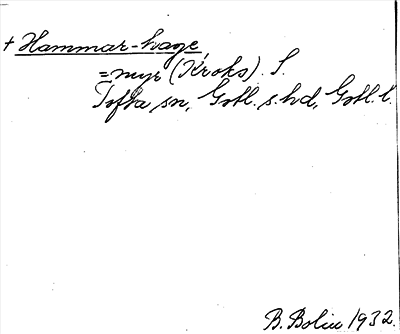 + Hammar-hage,
= myr (Kroks). S.
Tofta sn, Gotl. s. hd, Gotl. l.
B. Bolin 1932.